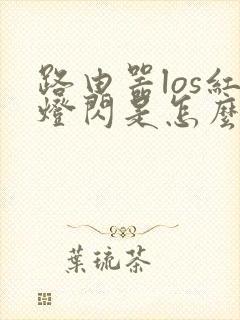 路由器los紅
燈閃是怎麼
葉琉茶